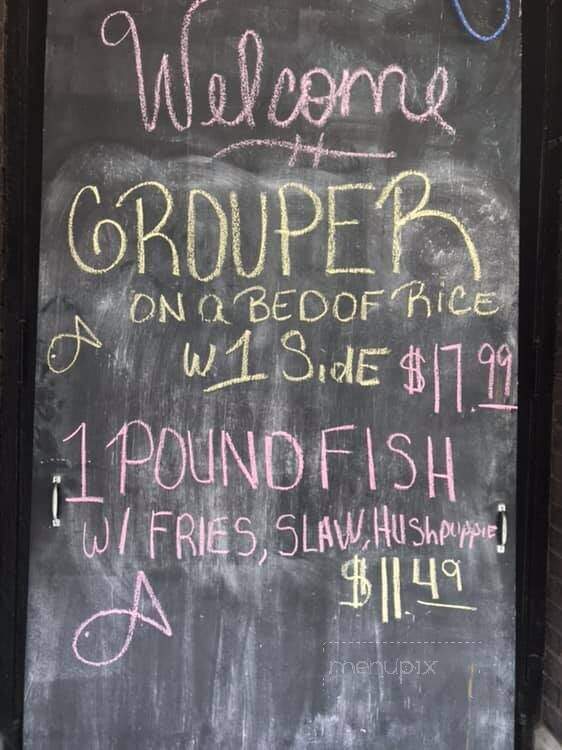 Welcome
GROUPER
ON a BED OF RICE
W 1 SidE $17.99
1 POUND FISH
W/ FRIES, SLAW, HUShpuppie
$11.49
menupix